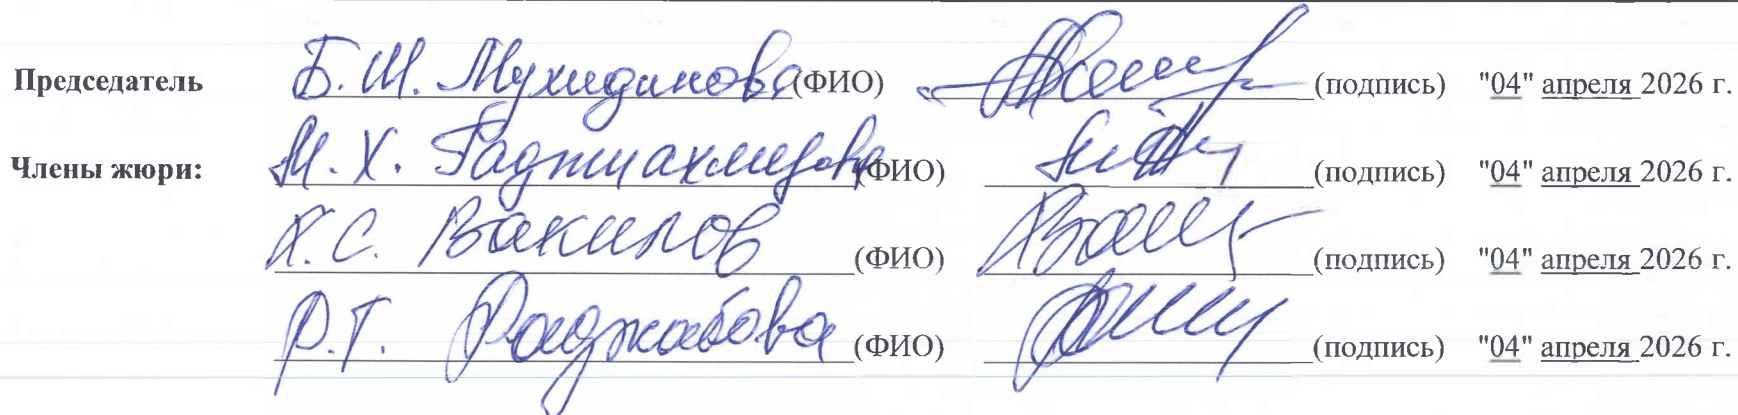 Председатель Б. Ш. Мухидинова (ФИО) (подпись) "04" апреля 2026 г.
Члены жюри: М. Х. Гаджиахмедова (ФИО) (подпись) "04" апреля 2026 г.
Х. С. Вакилов (ФИО) (подпись) "04" апреля 2026 г.
Р. Г. Раджабова (ФИО) (подпись) "04" апреля 2026 г.